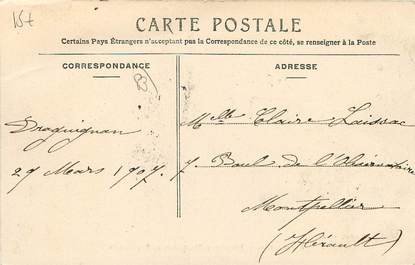 15+
CARTE POSTALE
Certains Pays Étrangers n'acceptant pas la Correspondance de ce côté, se renseigner à la Poste
CORRESPONDANCE
ADRESSE
Draguignan
29 Mars 1907.
Melle Claire Laissac
7. Boul de l'Observatoire
Montpellier
(Hérault)